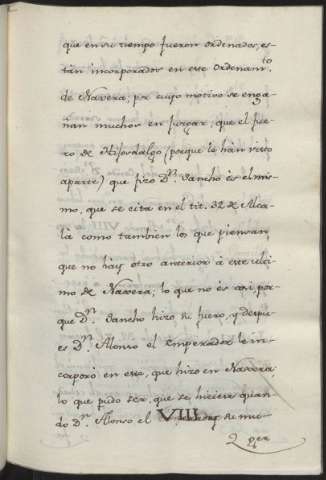 que en su tiempo fueron ordenados, es-
tan incorporados en este Ordenam.to
de Naxera, por cuyo motivo se enga-
ñan muchos en juzgar, que el fue-
ro de Hijosdalgo (porque le han visto
aparte) que hizo D.n Sancho es el mis-
mo, que se cita en el tit. 32 de Alca-
là como tambien los que piensan
que no hay otro anterior à este ulti-
mo de Naxera; lo que no es asi, por-
que D.n Sancho hizo su fuero, y despu-
es D.n Alonso el Emperador le in-
corporó en este, que hizo en Naxera,
lo que pudo ser, que se hiciera quan-
do D.n Alonso el VIII. de nue-
per